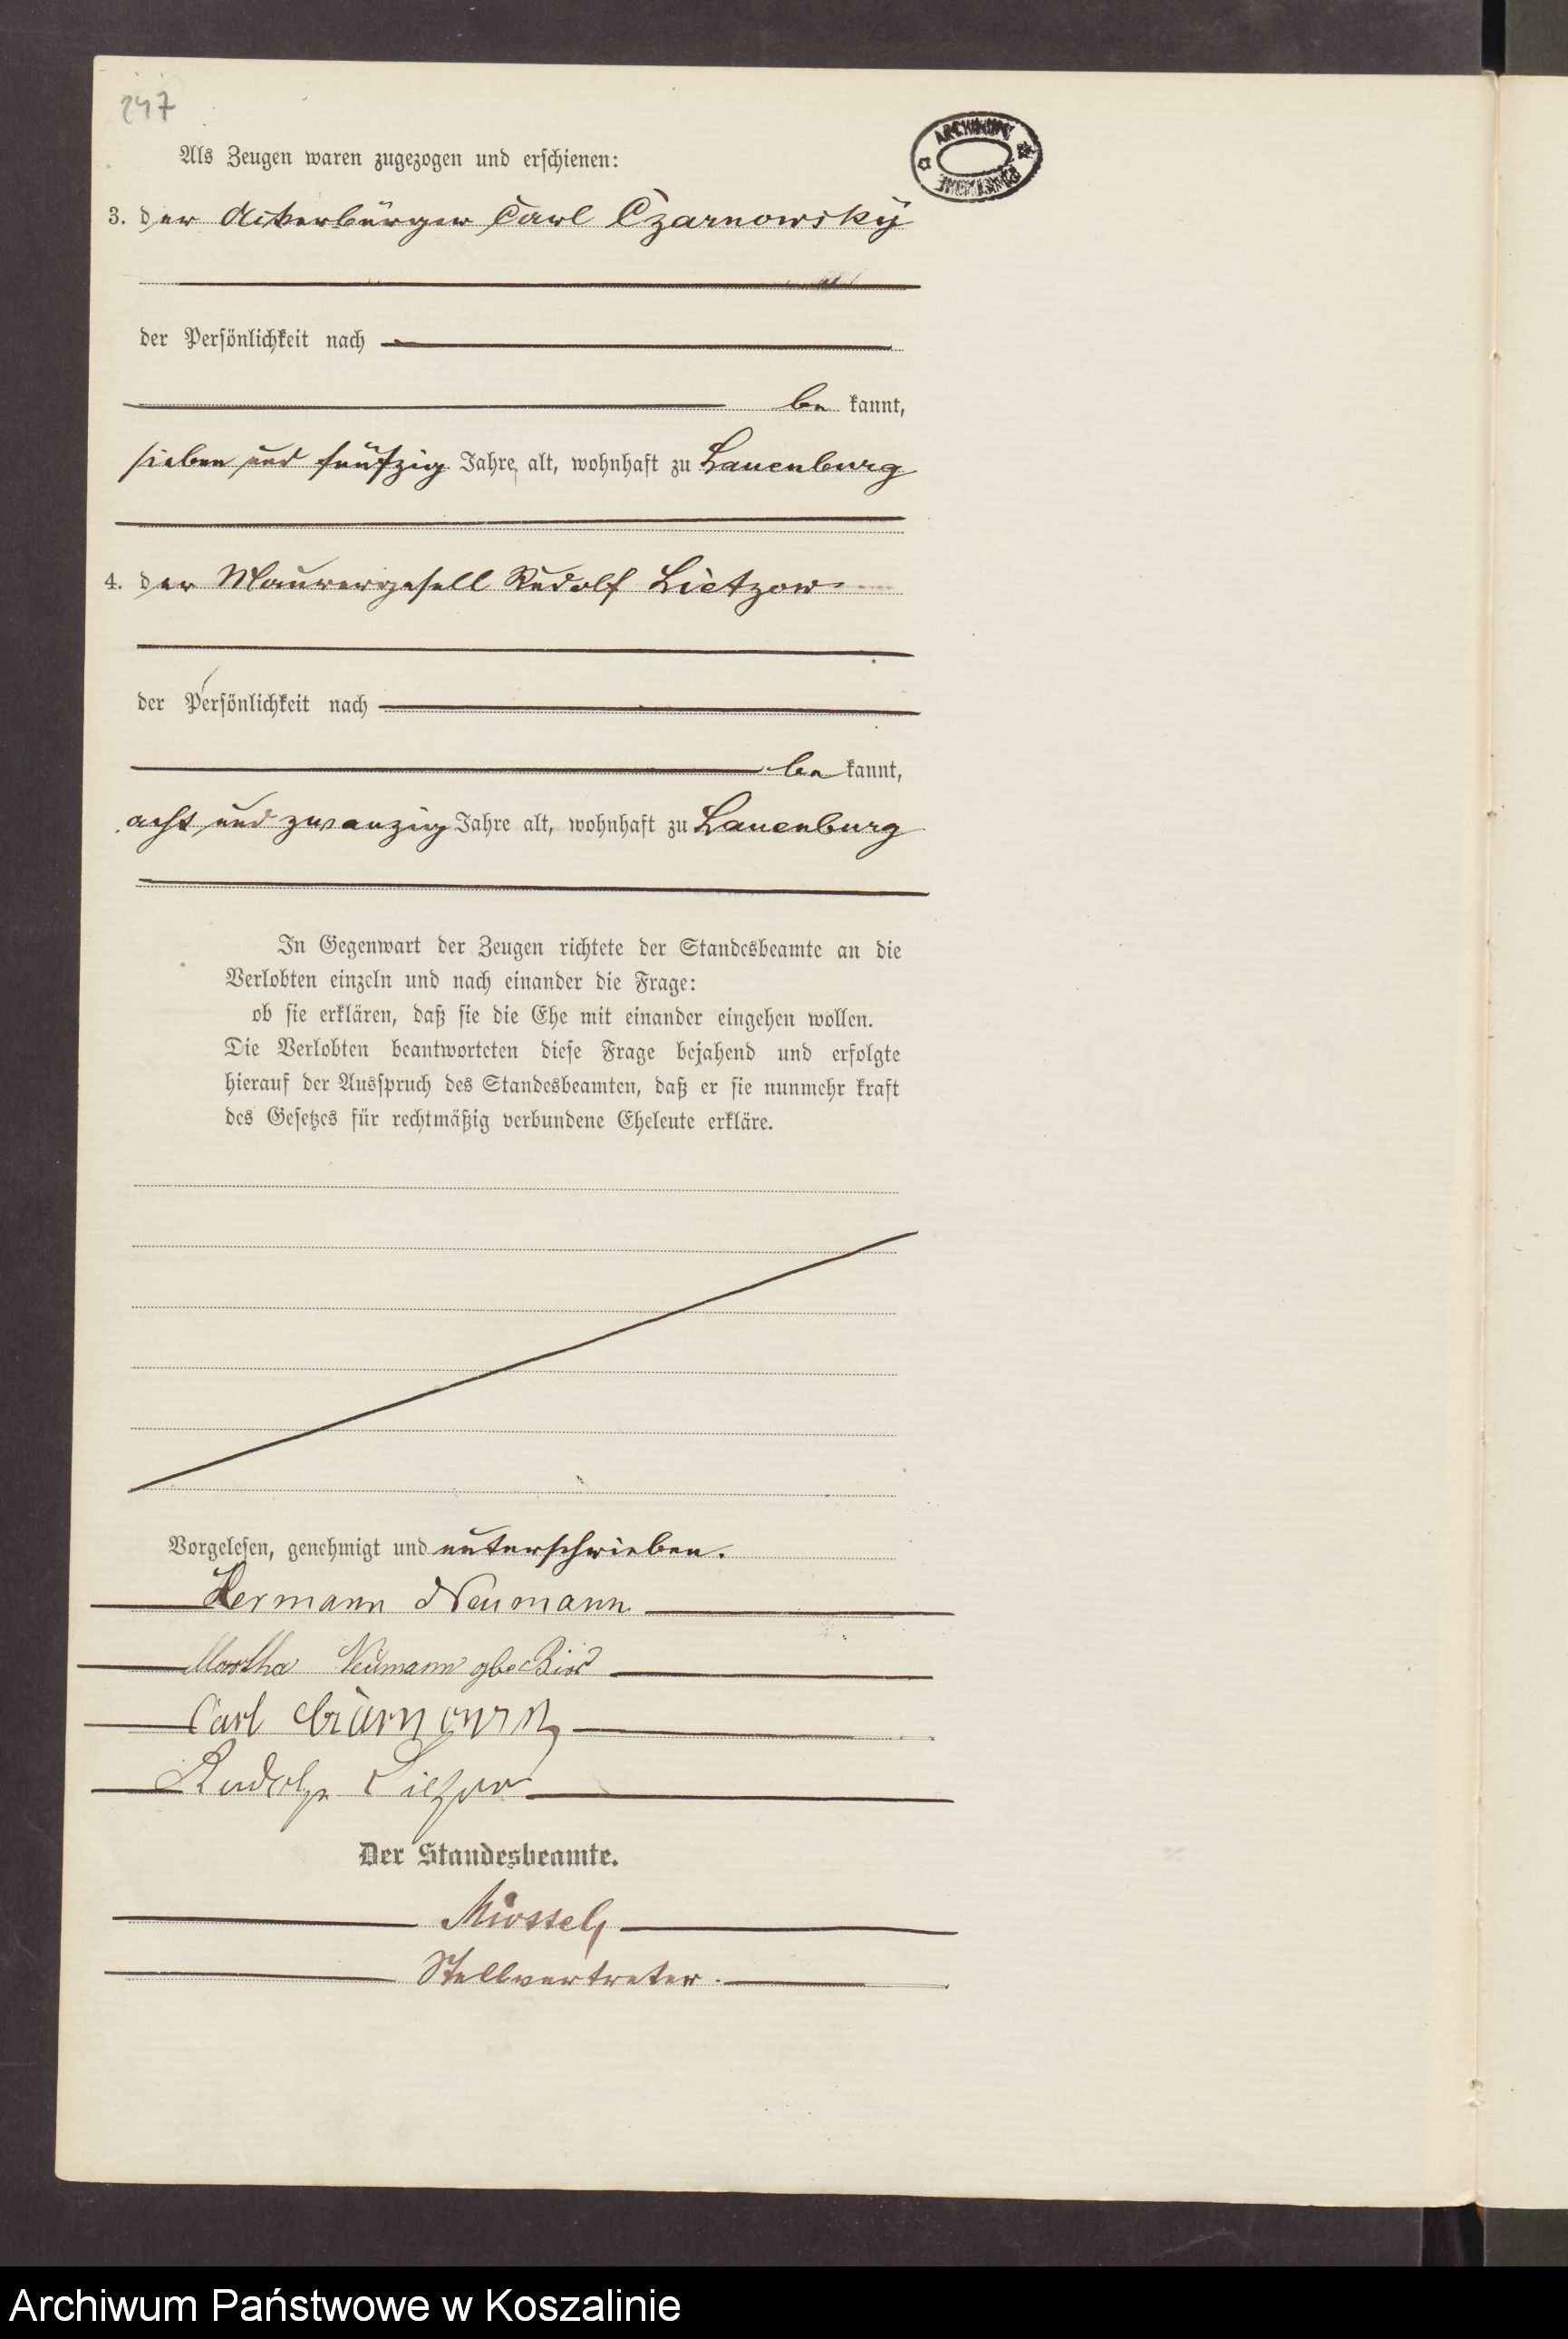 247
ARCHIWUM
PAŃSTWOWE
Als Zeugen waren zugezogen und erschienen:
3. der Ackerbürger Carl Czarnowsky
der Persönlichkeit nach
be kannt,
sieben und fünfzig Jahre alt, wohnhaft zu Lauenburg
4. der Maurergesell Rudolf Lietzow
der Persönlichkeit nach
be kannt,
acht und zwanzig Jahre alt, wohnhaft zu Lauenburg
In Gegenwart der Zeugen richtete der Standesbeamte an die
Verlobten einzeln und nach einander die Frage:
ob sie erklären, daß sie die Ehe mit einander eingehen wollen.
Die Verlobten beantworteten diese Frage bejahend und erfolgte
hierauf der Ausspruch des Standesbeamten, daß er sie nunmehr kraft
des Gesetzes für rechtmäßig verbundene Eheleute erkläre.
Vorgelesen, genehmigt und unterschrieben.
Hermann Neumann
Martha Neumann
Carl
Rudolf Lietzow
Der Standesbeamte.
Stellvertreter.
Archiwum Państwowe w Koszalinie